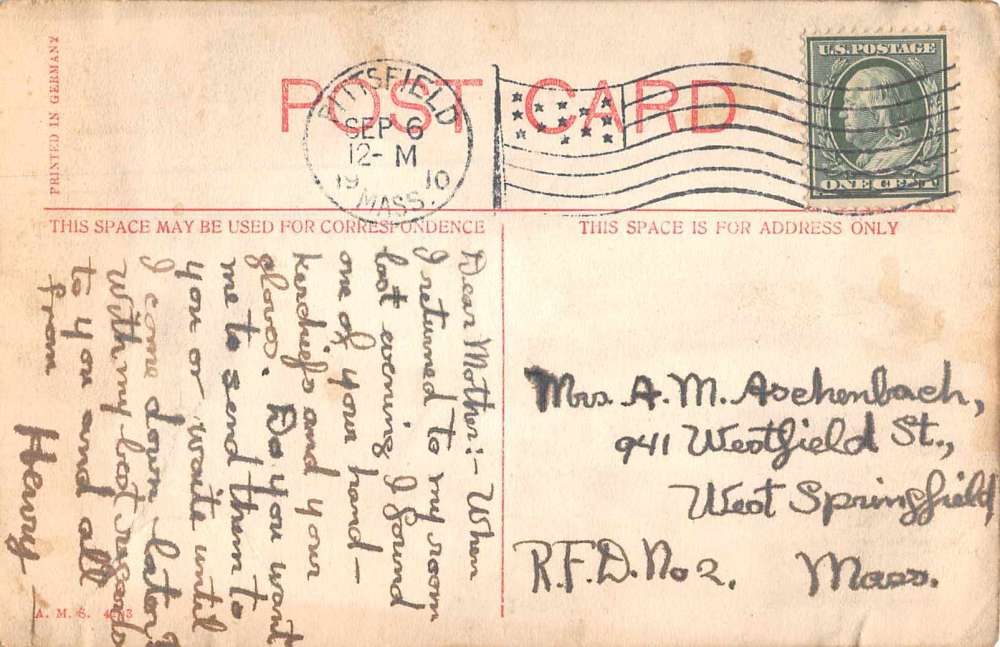 PRINTED IN GERMANY
POST CARD
PITTSFIELD
SEP 6
12- M
19 10
MASS.
U.S. POSTAGE
ONE CENT
THIS SPACE MAY BE USED FOR CORRESPONDENCE
THIS SPACE IS FOR ADDRESS ONLY
Dear Mother:- When
I returned to my room
last evening I found
one of your hand-
kerchiefs and your
gloves. Do you want
me to send them to
you or waite until
I come down later?
With my best regards
to you and all
from
Henry
Mrs. A. M. Aschenbach,
941 Westfield St.,
West Springfield
R.F.D. No 2. Mass.
A. M. S.